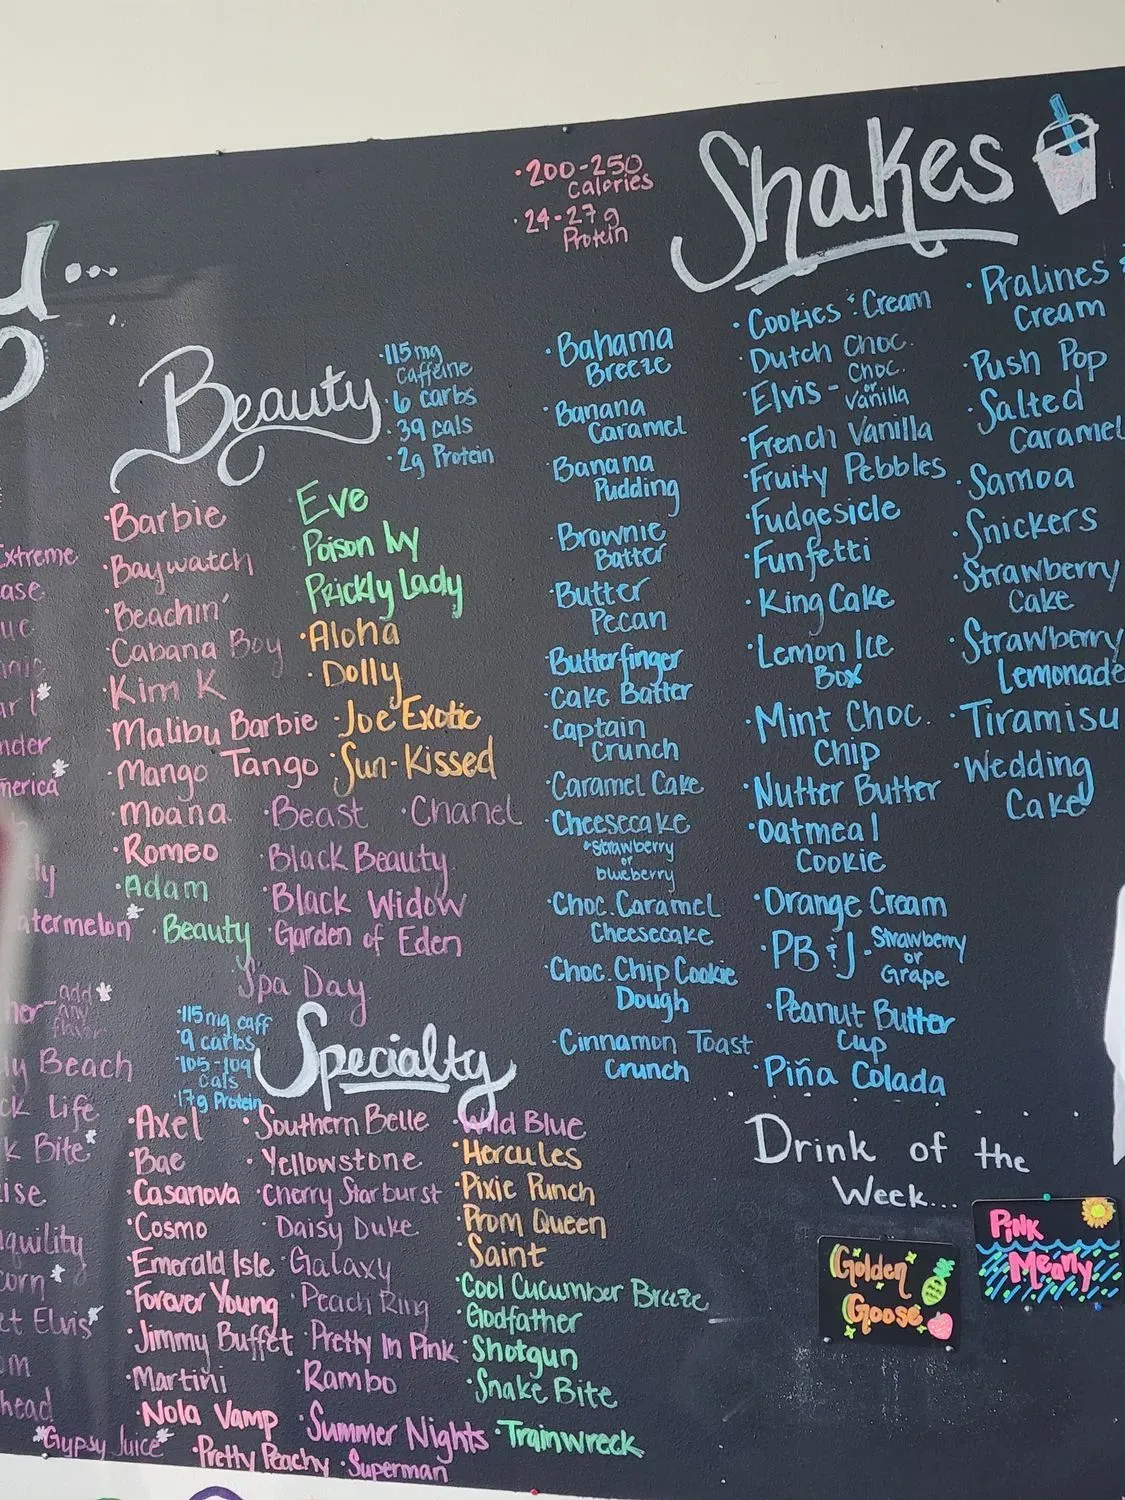 Shakes
• 200-250
Calories
• 24-27g
Protein
• Bahama
Breeze
• Banana
Caramel
• Banana
Pudding
• Brownie
Batter
• Butter
Pecan
• Butterfinger
• Cake Batter
• Captain
Crunch
• Caramel Cake
• Cheesecake
• Strawberry
or
blueberry
• Choc. Caramel
Cheesecake
• Choc. Chip Cookie
Dough
• Cinnamon Toast
Crunch
• Cookies & Cream
• Dutch Choc.
• Elvis - Choc.
or
Vanilla
• French Vanilla
• Fruity Pebbles
• Fudgesicle
• Funfetti
• King Cake
• Lemon Ice
Box
• Mint Choc.
Chip
• Nutter Butter
• Oatmeal
Cookie
• Orange Cream
• PB & J - Strawberry
or
Grape
• Peanut Butter
Cup
• Piña Colada
• Pralines &
Cream
• Push Pop
• Salted
Caramel
• Samoa
• Snickers
• Strawberry
Cake
• Strawberry
Lemonade
• Tiramisu
• Wedding
Cake
Beauty
• 115 mg
Caffeine
• 6 carbs
• 39 cals
• 2g Protein
• Barbie
• Baywatch
• Beachin'
• Cabana Boy
• Kim K
• Malibu Barbie
• Mango Tango
• Moana
• Romeo
• Adam
• Beauty
• Eve
• Poison Ivy
• Prickly Lady
• Aloha
• Dolly
• Joe Exotic
• Sun-Kissed
• Beast
• Chanel
• Black Beauty
• Black Widow
• Garden of Eden
• Spa Day
Specialty
• 115 mg caff
• 9 carbs
• 105-109
cals
• 17g Protein
• Axel
• Bae
• Casanova
• Cosmo
• Emerald Isle
• Forever Young
• Jimmy Buffet
• Martini
• Nola Vamp
• Pretty Peachy
• Southern Belle
• Yellowstone
• Cherry Starburst
• Daisy Duke
• Galaxy
• Peach Ring
• Pretty In Pink
• Rambo
• Summer Nights
• Superman
• Wild Blue
• Hercules
• Pixie Punch
• Prom Queen
• Saint
• Cool Cucumber Breeze
• Godfather
• Shotgun
• Snake Bite
• Trainwreck
Drink of the
Week...
Golden
Goose
Pink
Meany
Extreme
add
any
flavor
Beach
Life
Bite*
Elvis*
*Gypsy Juice*